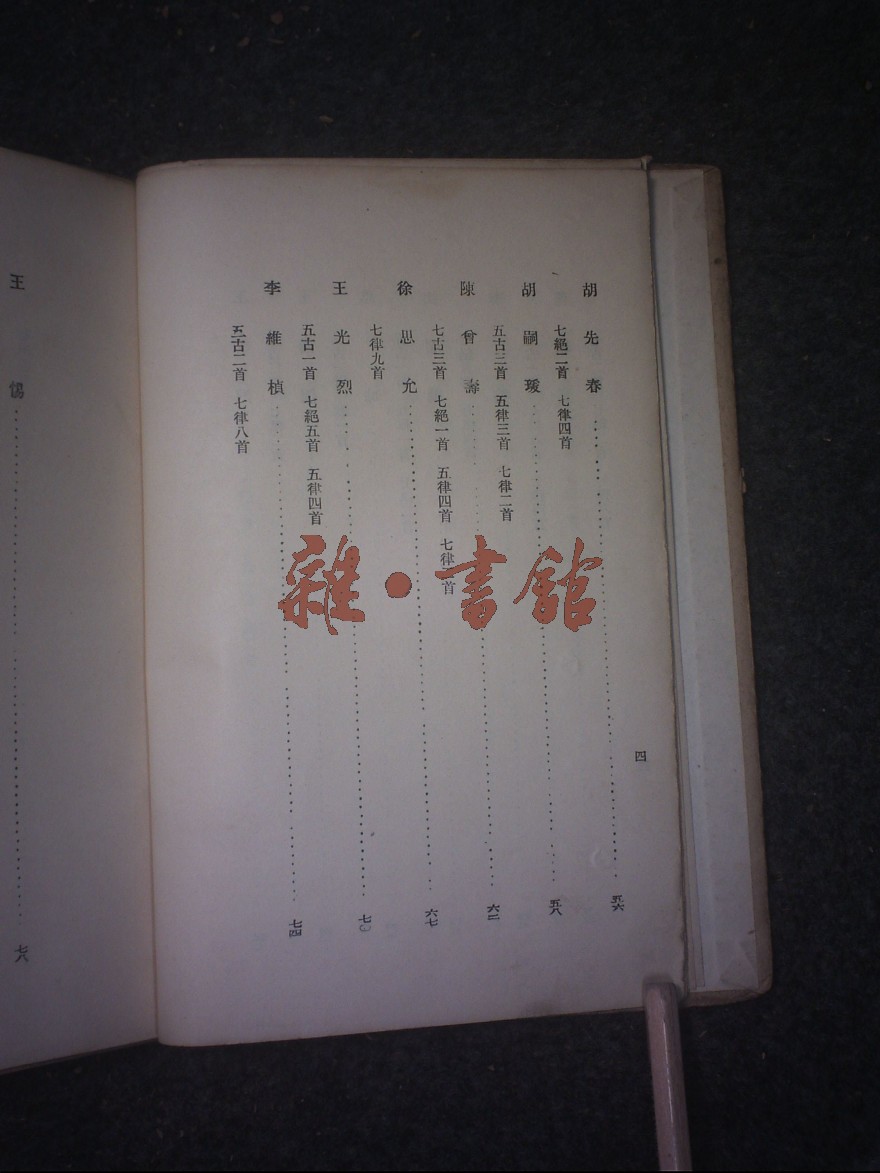 四
胡先春 五六
七絕二首 七律四首
胡嗣瑗 五八
五古三首 五律三首 七律二首
陳曾壽 六二
七古三首 七絕一首 五律四首 七律 首
徐思允 六七
七律九首
王光烈 七〇
五古一首 七絕五首 五律四首
李維楨 七四
五古二首 七律八首
王 七八
雜·書館